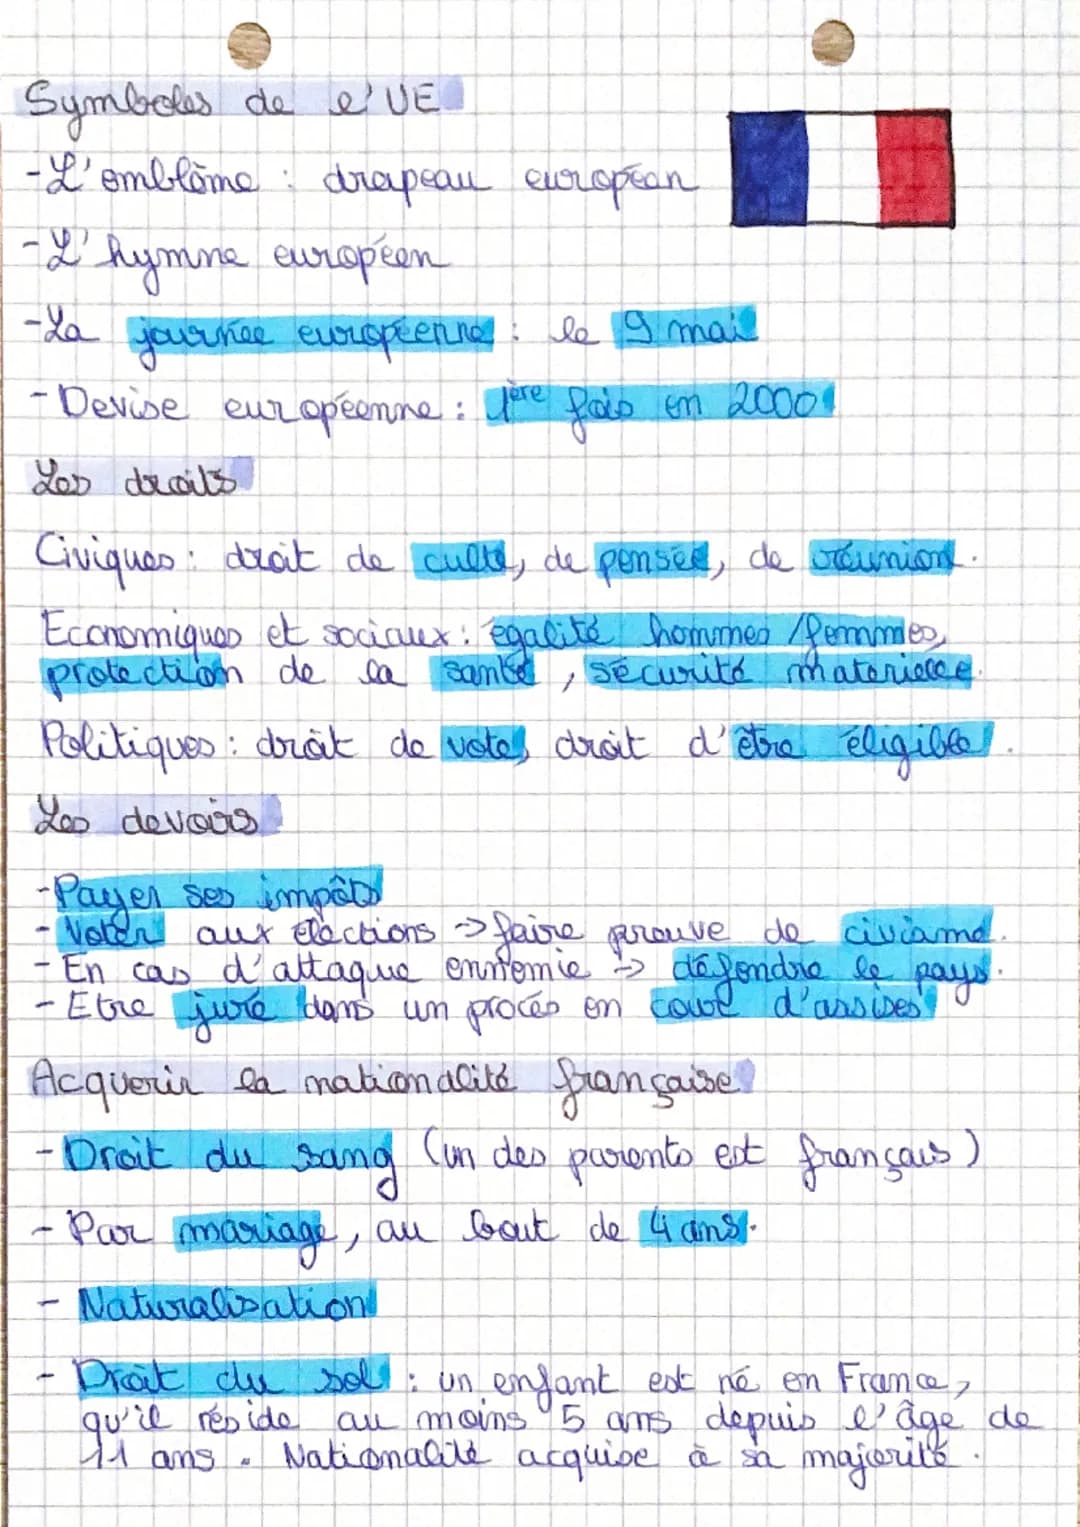 Symboles de l'UE
- L'emblème : drapeau européan
- L'hymne européen
- La journée européenne : le 9 mai
- Devise européenne : 1ère fois en 2000
Les droits
Civiques : droit de culte, de pensée, de réunion.
Economiques et sociaux : égalité hommes/femmes,
protection de la santé, sécurité materielle.
Politiques : droit de vote, droit d'être éligible.
Les devoirs
- Payer ses impôts
- Voter aux élections -> faire preuve de civisme.
- En cas d'attaque ennemie -> défendre le pays.
- Etre juré dans un procés en cour d'assises
Acquerir la nationalité française
- Droit du sang (un des parents est français)
- Par mariage, au bout de 4 ans.
- Naturalisation
- Droit du sol : un enfant est né en France,
qu'il réside au moins 5 ans depuis l'âge de
11 ans. Nationalité acquise à sa majorité.